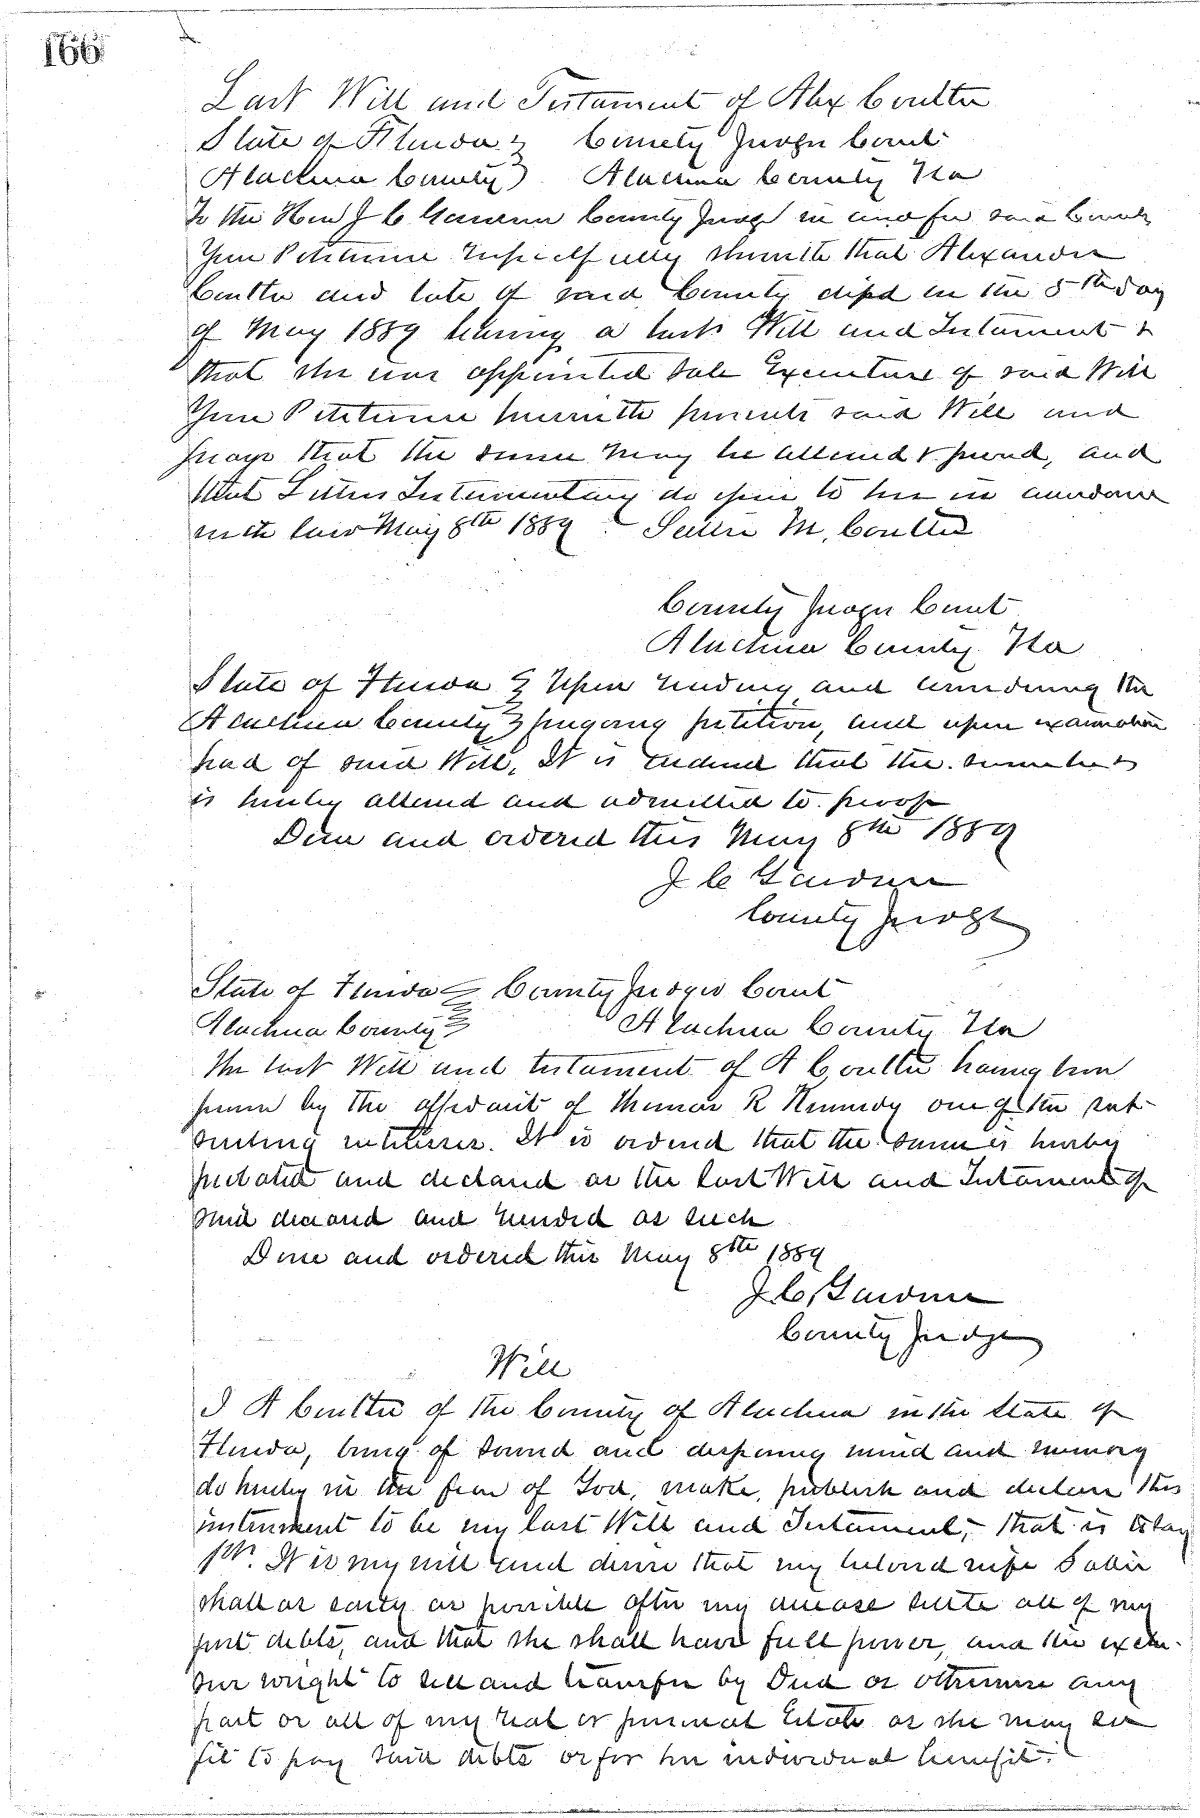 166
Last Will and Testament of Alex Coulter
State of Florida } County Judges Court
Alachua County } Alachua County Fla
To the Hon J C Gardner County Judge in and for said County
Your Petitioner respectfully showeth that Alexander
Coulter decd late of said County died on the 5th day
of May 1889 leaving a last Will and Testament &
that she was appointed sole Executrix of said Will
Your Petitioner herewith presents said Will and
prays that the same may be allowed & proved, and
that Letters Testamentary do issue to her in accordance
with law May 8th 1889 Sallie M. Coulter
County Judges Court
Alachua County Fla
State of Florida } Upon reading and considering the
Alachua County } foregoing petition, and upon examination
had of said Will, It is ordered that the same be &
is hereby allowed and admitted to proof
Done and ordered this May 8th 1889
J C Gardner
County Judge
State of Florida } County Judges Court
Alachua County } Alachua County Fla
The last Will and testament of A Coulter having been
proven by the affidavit of Thomas R Kennedy one of the sub-
scribing witnesses. It is ordered that the same is hereby
probated and declared as the last Will and Testament of
said deceased and recorded as such
Done and ordered this May 8th 1889
J. C. Gardner
County Judge
Will
I A Coulter of the County of Alachua in the State of
Florida, being of sound and disposing mind and memory
do hereby in the fear of God, make, publish and declare this
instrument to be my last Will and Testament, that is to say
1st. It is my will and desire that my beloved wife Sallie
shall as early as possible after my decease settle all of my
just debts, and that she shall have full power, and the exclu-
sive wright to sell and transfer by Deed or otherwise any
part or all of my real or personal Estate as she may see
fit to pay said debts or for her individual benefit.